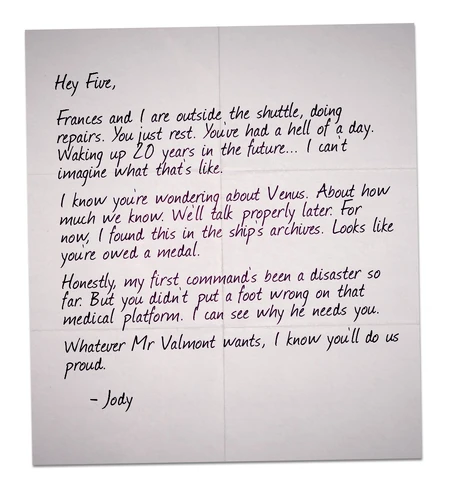 Hey Five,
Frances and I are outside the shuttle, doing
repairs. You just rest. You've had a hell of a day.
Waking up 20 years in the future... I can't
imagine what that's like.
I know you're wondering about Venus. About how
much we know. We'll talk properly later. For
now, I found this in the ship's archives. Looks like
you're owed a medal.
Honestly, my first command's been a disaster so
far. But you didn't put a foot wrong on that
medical platform. I can see why he needs you.
Whatever Mr Valmont wants, I know you'll do us
proud.
- Jody